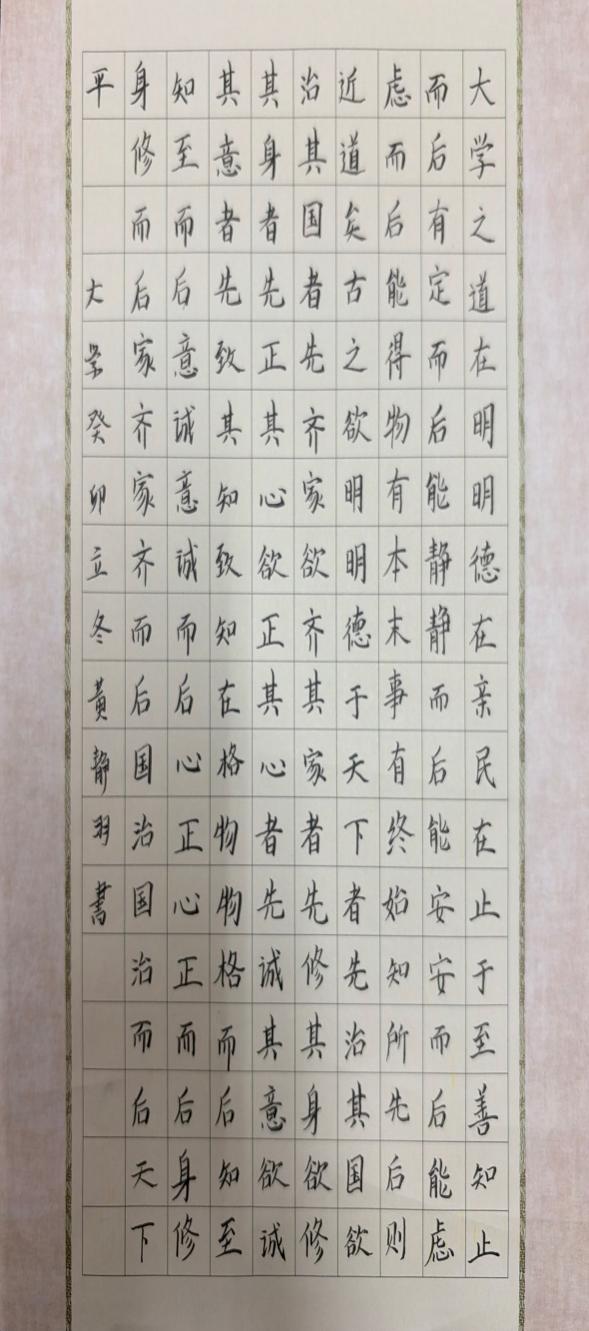 大学之道在明明德在亲民在止于至善知止
而后有定而后能静静而后能安安而后能虑
虑而后能得物有本末事有终始知所先后则
近道矣古之欲明明德于天下者先治其国欲
治其国者先齐家欲齐其家者先修其身欲修
其身者先正其心欲正其心者先诚其意欲诚
其意者先致其知致知在格物物格而后知至
知至而后意诚意诚而后心正心正而后身修
身修而后家齐家齐而后国治国治而后天下
平 大学癸卯立冬黄静羽书